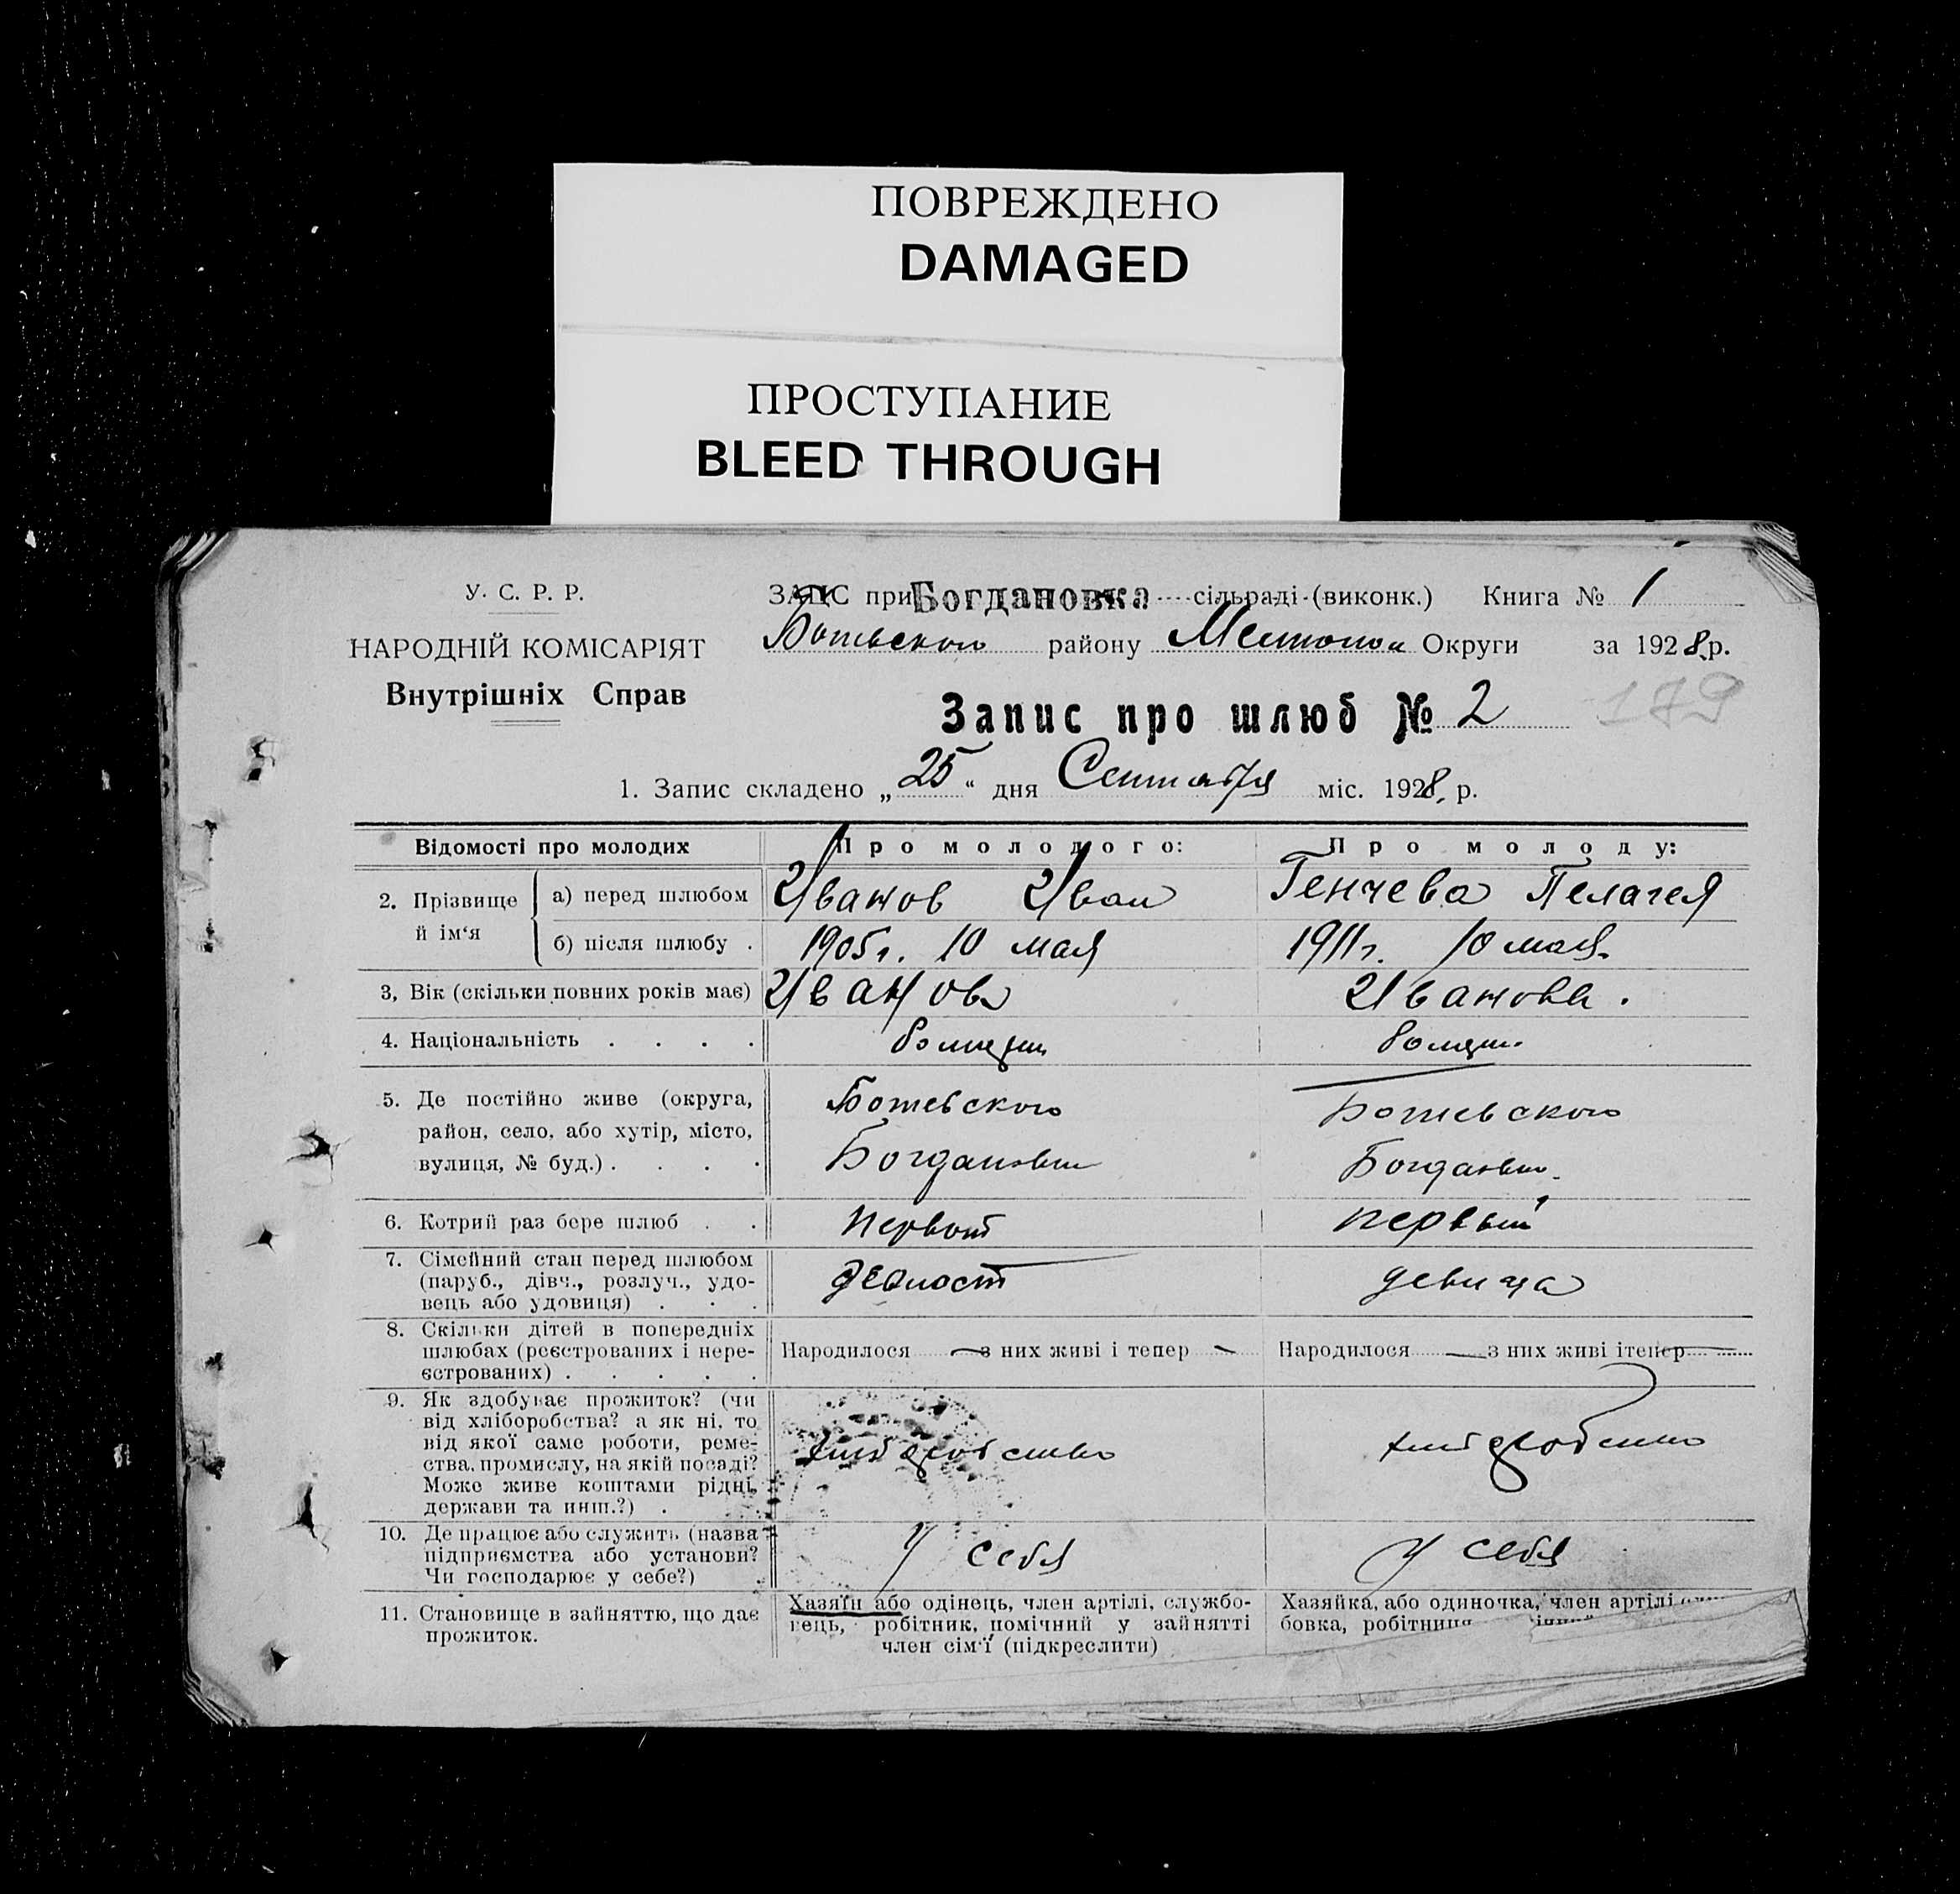 ПОВРЕЖДЕНО
DAMAGED
ПРОСТУПАНИЕ
BLEED THROUGH
У. С. Р. Р.
НАРОДНІЙ КОМІСАРІЯТ
Внутрішніх Справ
ЗАГС при Богдановка сільраді (виконк.) Книга № 1
Ботьевского району Округи за 1928 р.
Запис про шлюб № 2 179
1. Запис складено „25“ дня Сентября міс. 1928, р.
Відомості про молодих Про молодого: Про молоду:
2. Прізвище й ім‘я
а) перед шлюбом Иванов Иван Генчева Пелагея
б) після шлюбу . 1905г. 10 мая 1911г. 10 мая.
3, Вік (скільки повних років має) Иванов Иванова.
4. Національність . . . .
5. Де постійно живе (округа, Ботевского Ботевского
район, село, або хутір, місто,
вулиця, № буд.) . . . . Богдановки Богдановки.
6. Котрий раз бере шлюб . . первый первый
7. Сімейний стан перед шлюбом
(паруб., дівч., розлуч., удо- девица
вець або удовиця) . . .
8. Скільки дітей в попередніх
шлюбах (реєстрованих і нере- Народилося — з них живі і тепер — Народилося — з них живі і тепер —
єстрованих) . . . . .
9. Як здобуває прожиток? (чи
від хліборобства? а як ні, то
від якої саме роботи, реме-
ства, промислу, на якій посаді?
Може живе коштами рідні,
держави та инш.?) .
10. Де працює або служить (назва
підприємства або установи? У себя У себя
Чи господарює у себе?)
11. Становище в зайняттю, що дає
прожиток.
Хазяїн або одінець, член артілі, службо-
вець, робітник, помічний у зайнятті
член сім‘ї (підкреслити)
Хазяйка, або одиночка, член артілі
бовка, робітниця